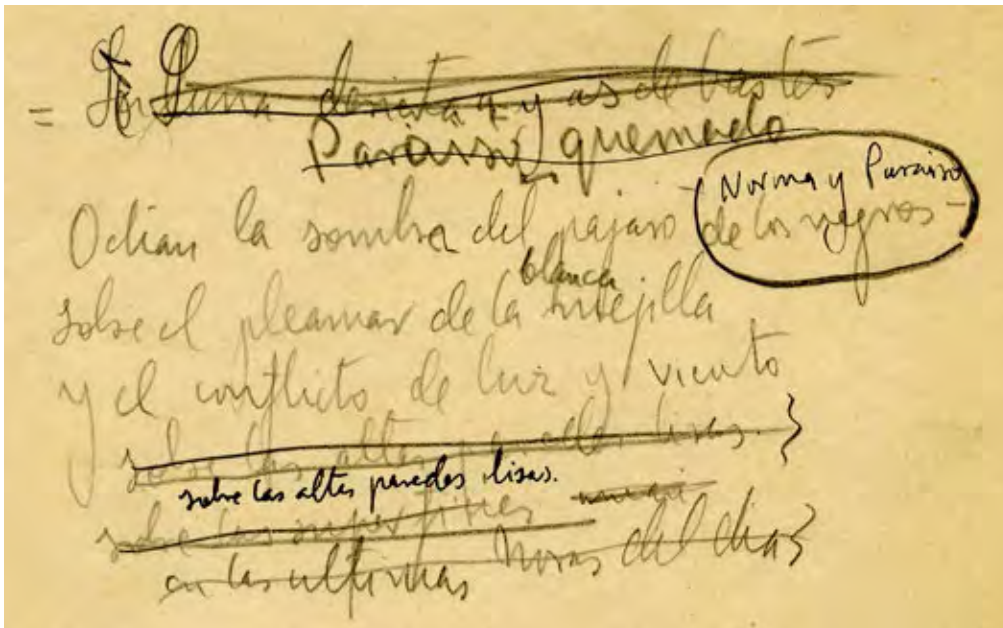 = y as de bastos
Paraiso quemado
Norma y Paraiso
Odian la sombra del pajaro de los negros
blanca
sobre el pleamar de la mejilla
y el conflicto de luz y viento
sobre las altas paredes lisas.
sobre las altas paredes lisas.
sobre las superficies
en las ultimas horas del dia